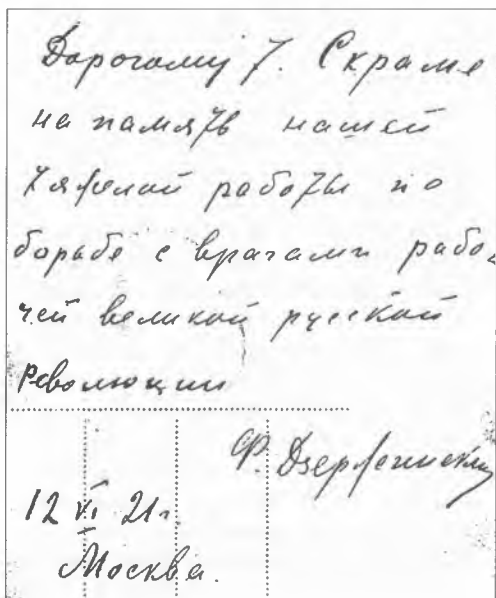 Дорогому Т. Скраме
на память нашей
тяжелой работы по
борьбе с врагами рабо-
чей великой русской
революции
Ф. Дзержинский
12 VI 21 г.
Москва.